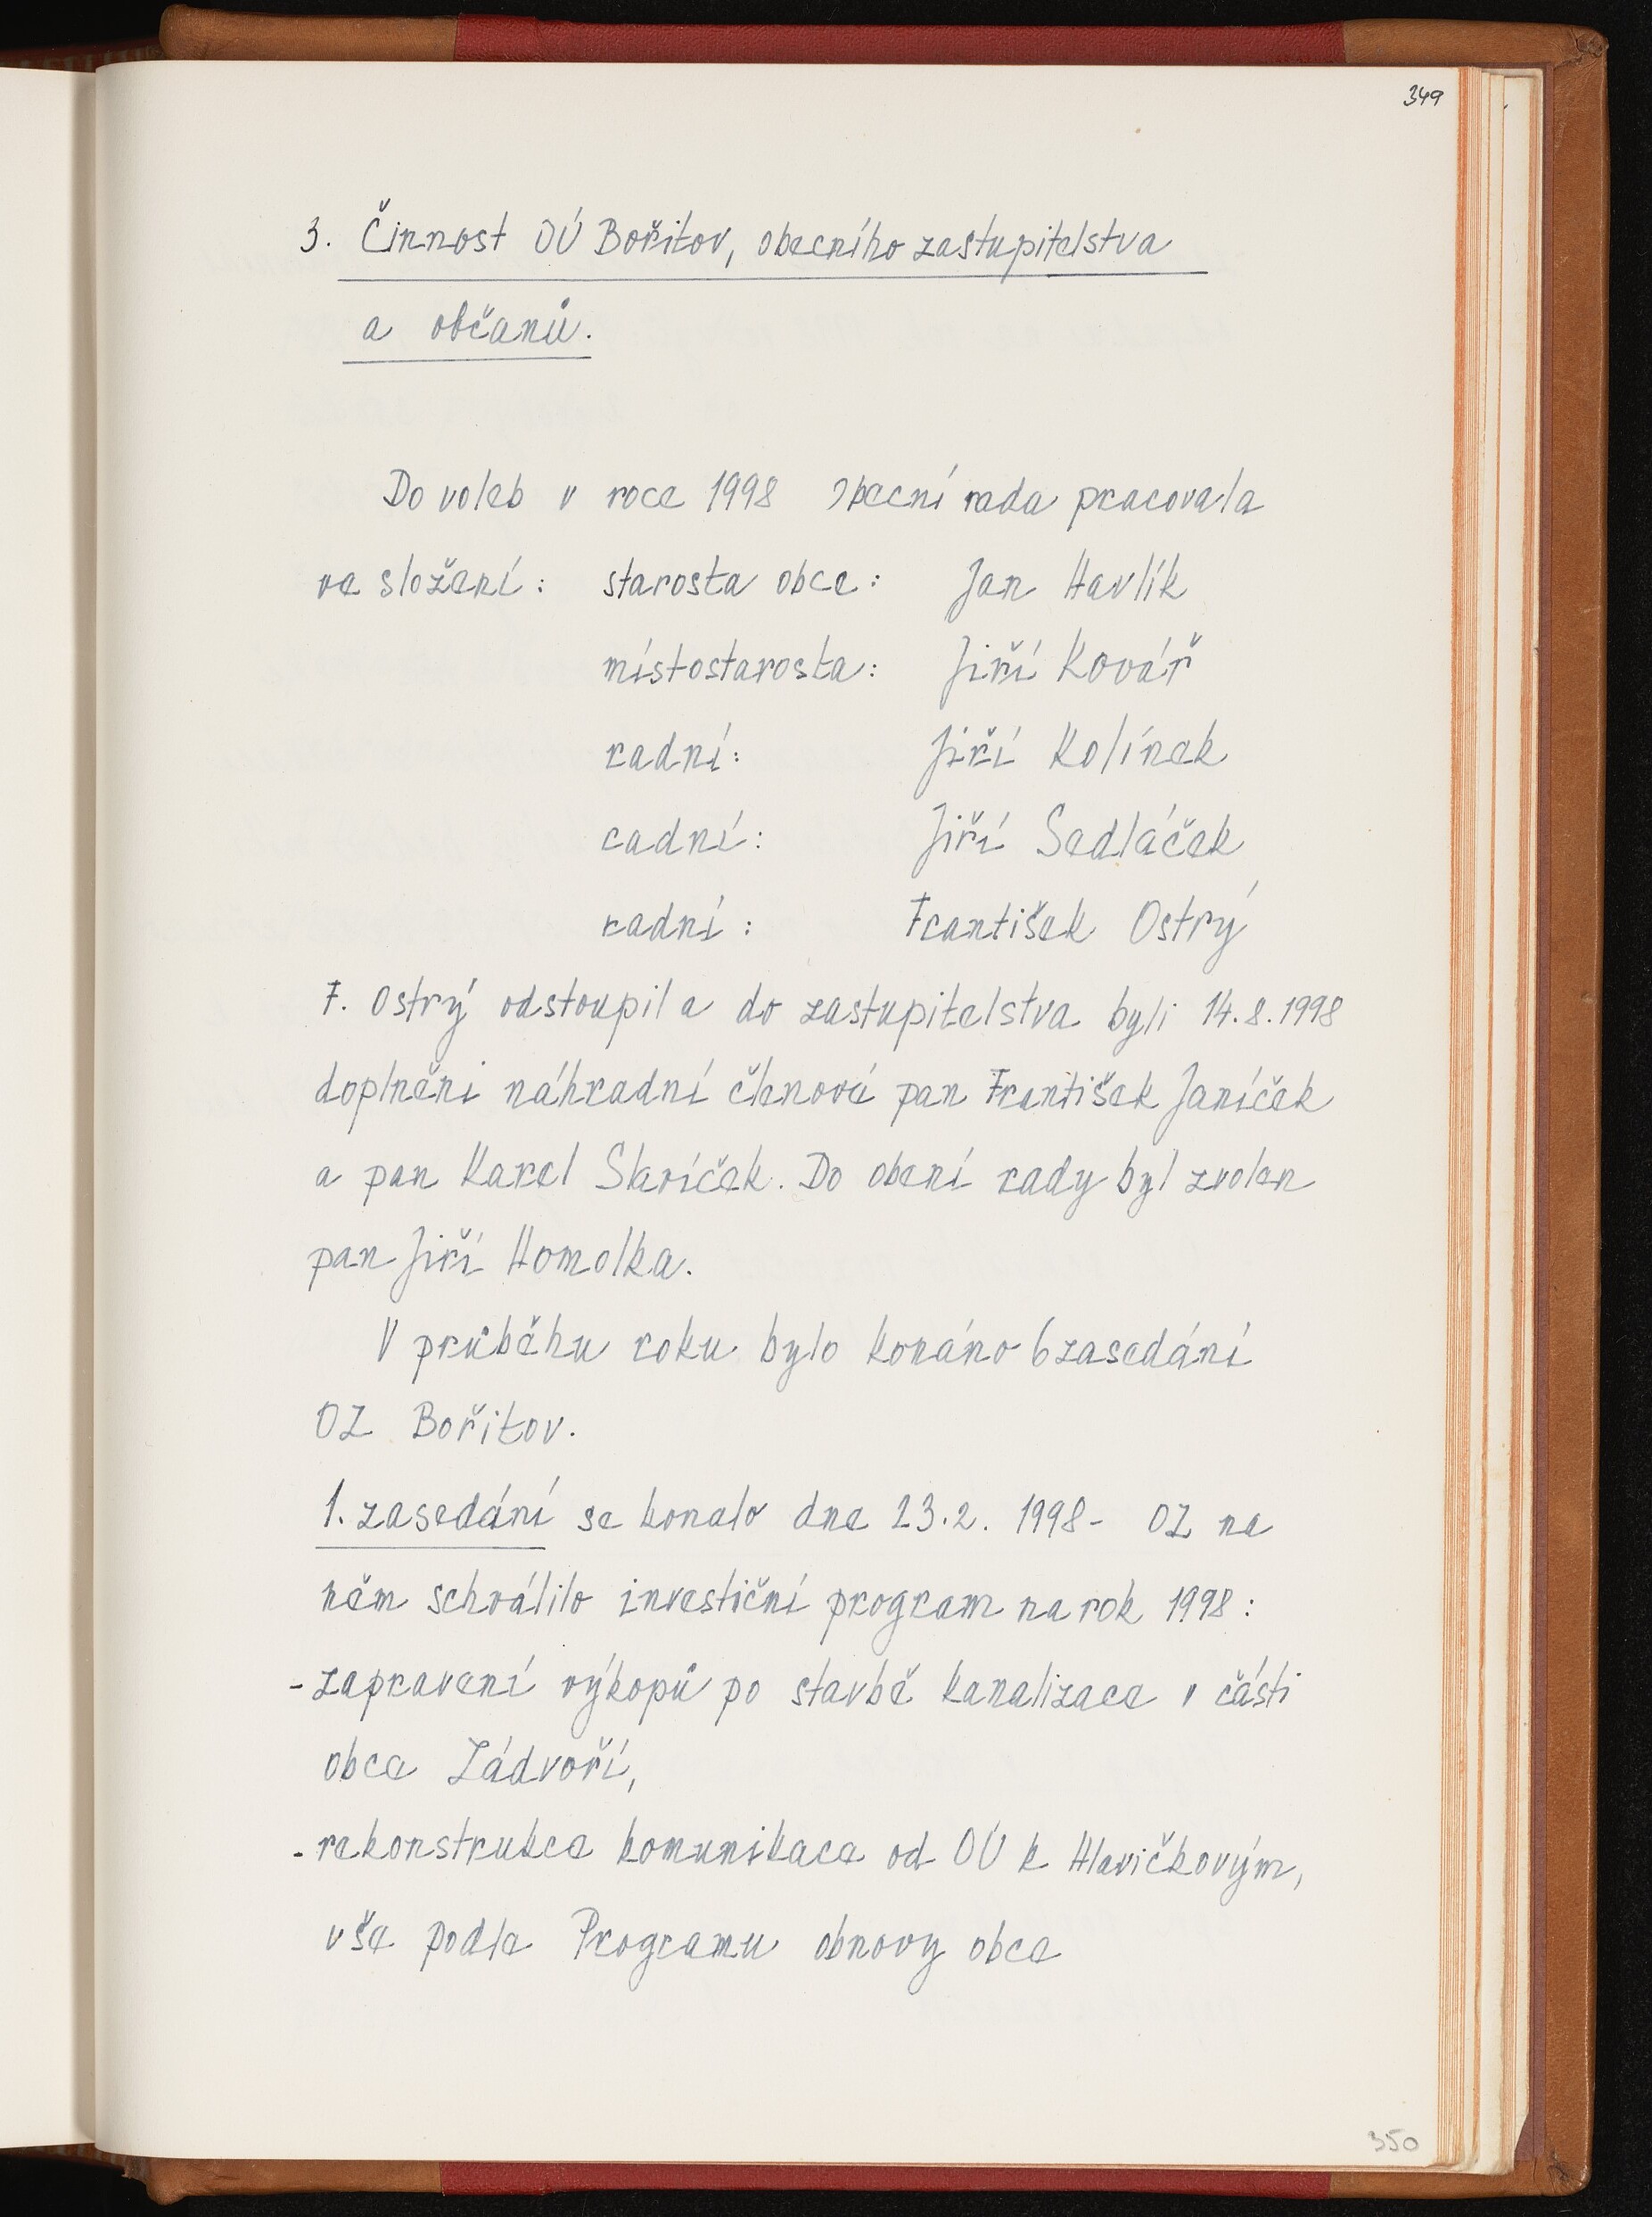 349
3. Činnost OÚ Bořitov, obecního zastupitelstva
a občanů.
Do voleb v roce 1998 obecní rada pracovala
ve složení: starosta obce: Jan Havlík
místostarosta: Jiří Kovář
radní: Jiří Kolínek
radní: Jiří Sedláček
radní: František Ostrý
F. Ostrý odstoupil a do zastupitelstva byli 14.8.1998
doplněni náhradní členové pan František Janíček
a pan Karel Slavíček. Do obení rady byl zvolen
pan Jiří Homolka.
V průběhu roku bylo konáno 6 zasedání
OZ Bořitov.
1. zasedání se konalo dne 23.2. 1998- OZ na
něm schválilo investiční program na rok 1998:
- zapravení výkopů po stavbě kanalizace v části
obce Zádvoří,
- rekonstrukce komunikace od OÚ k Hlavičkovým,
vše podle Programu obnovy obce
350